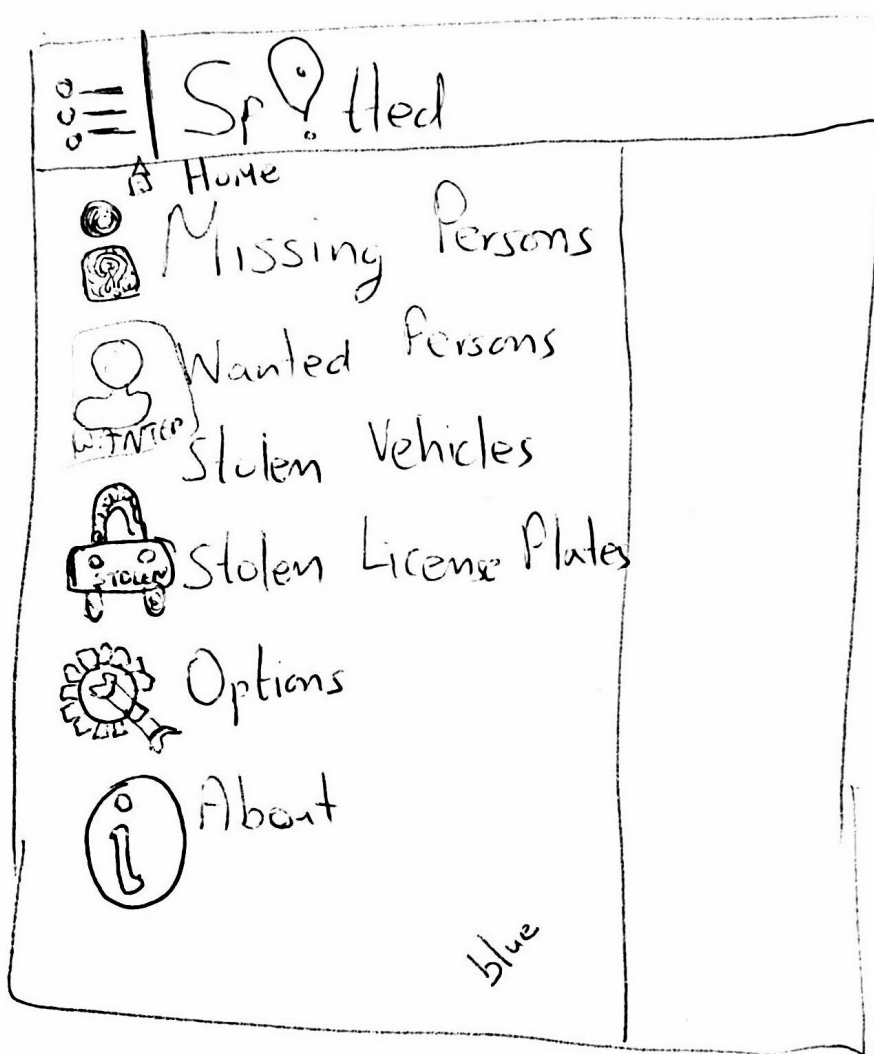 Spotted
Home
Missing Persons
Wanted Persons
WANTED
Stolen Vehicles
Stolen License Plates
STOLEN
Options
i About
blue